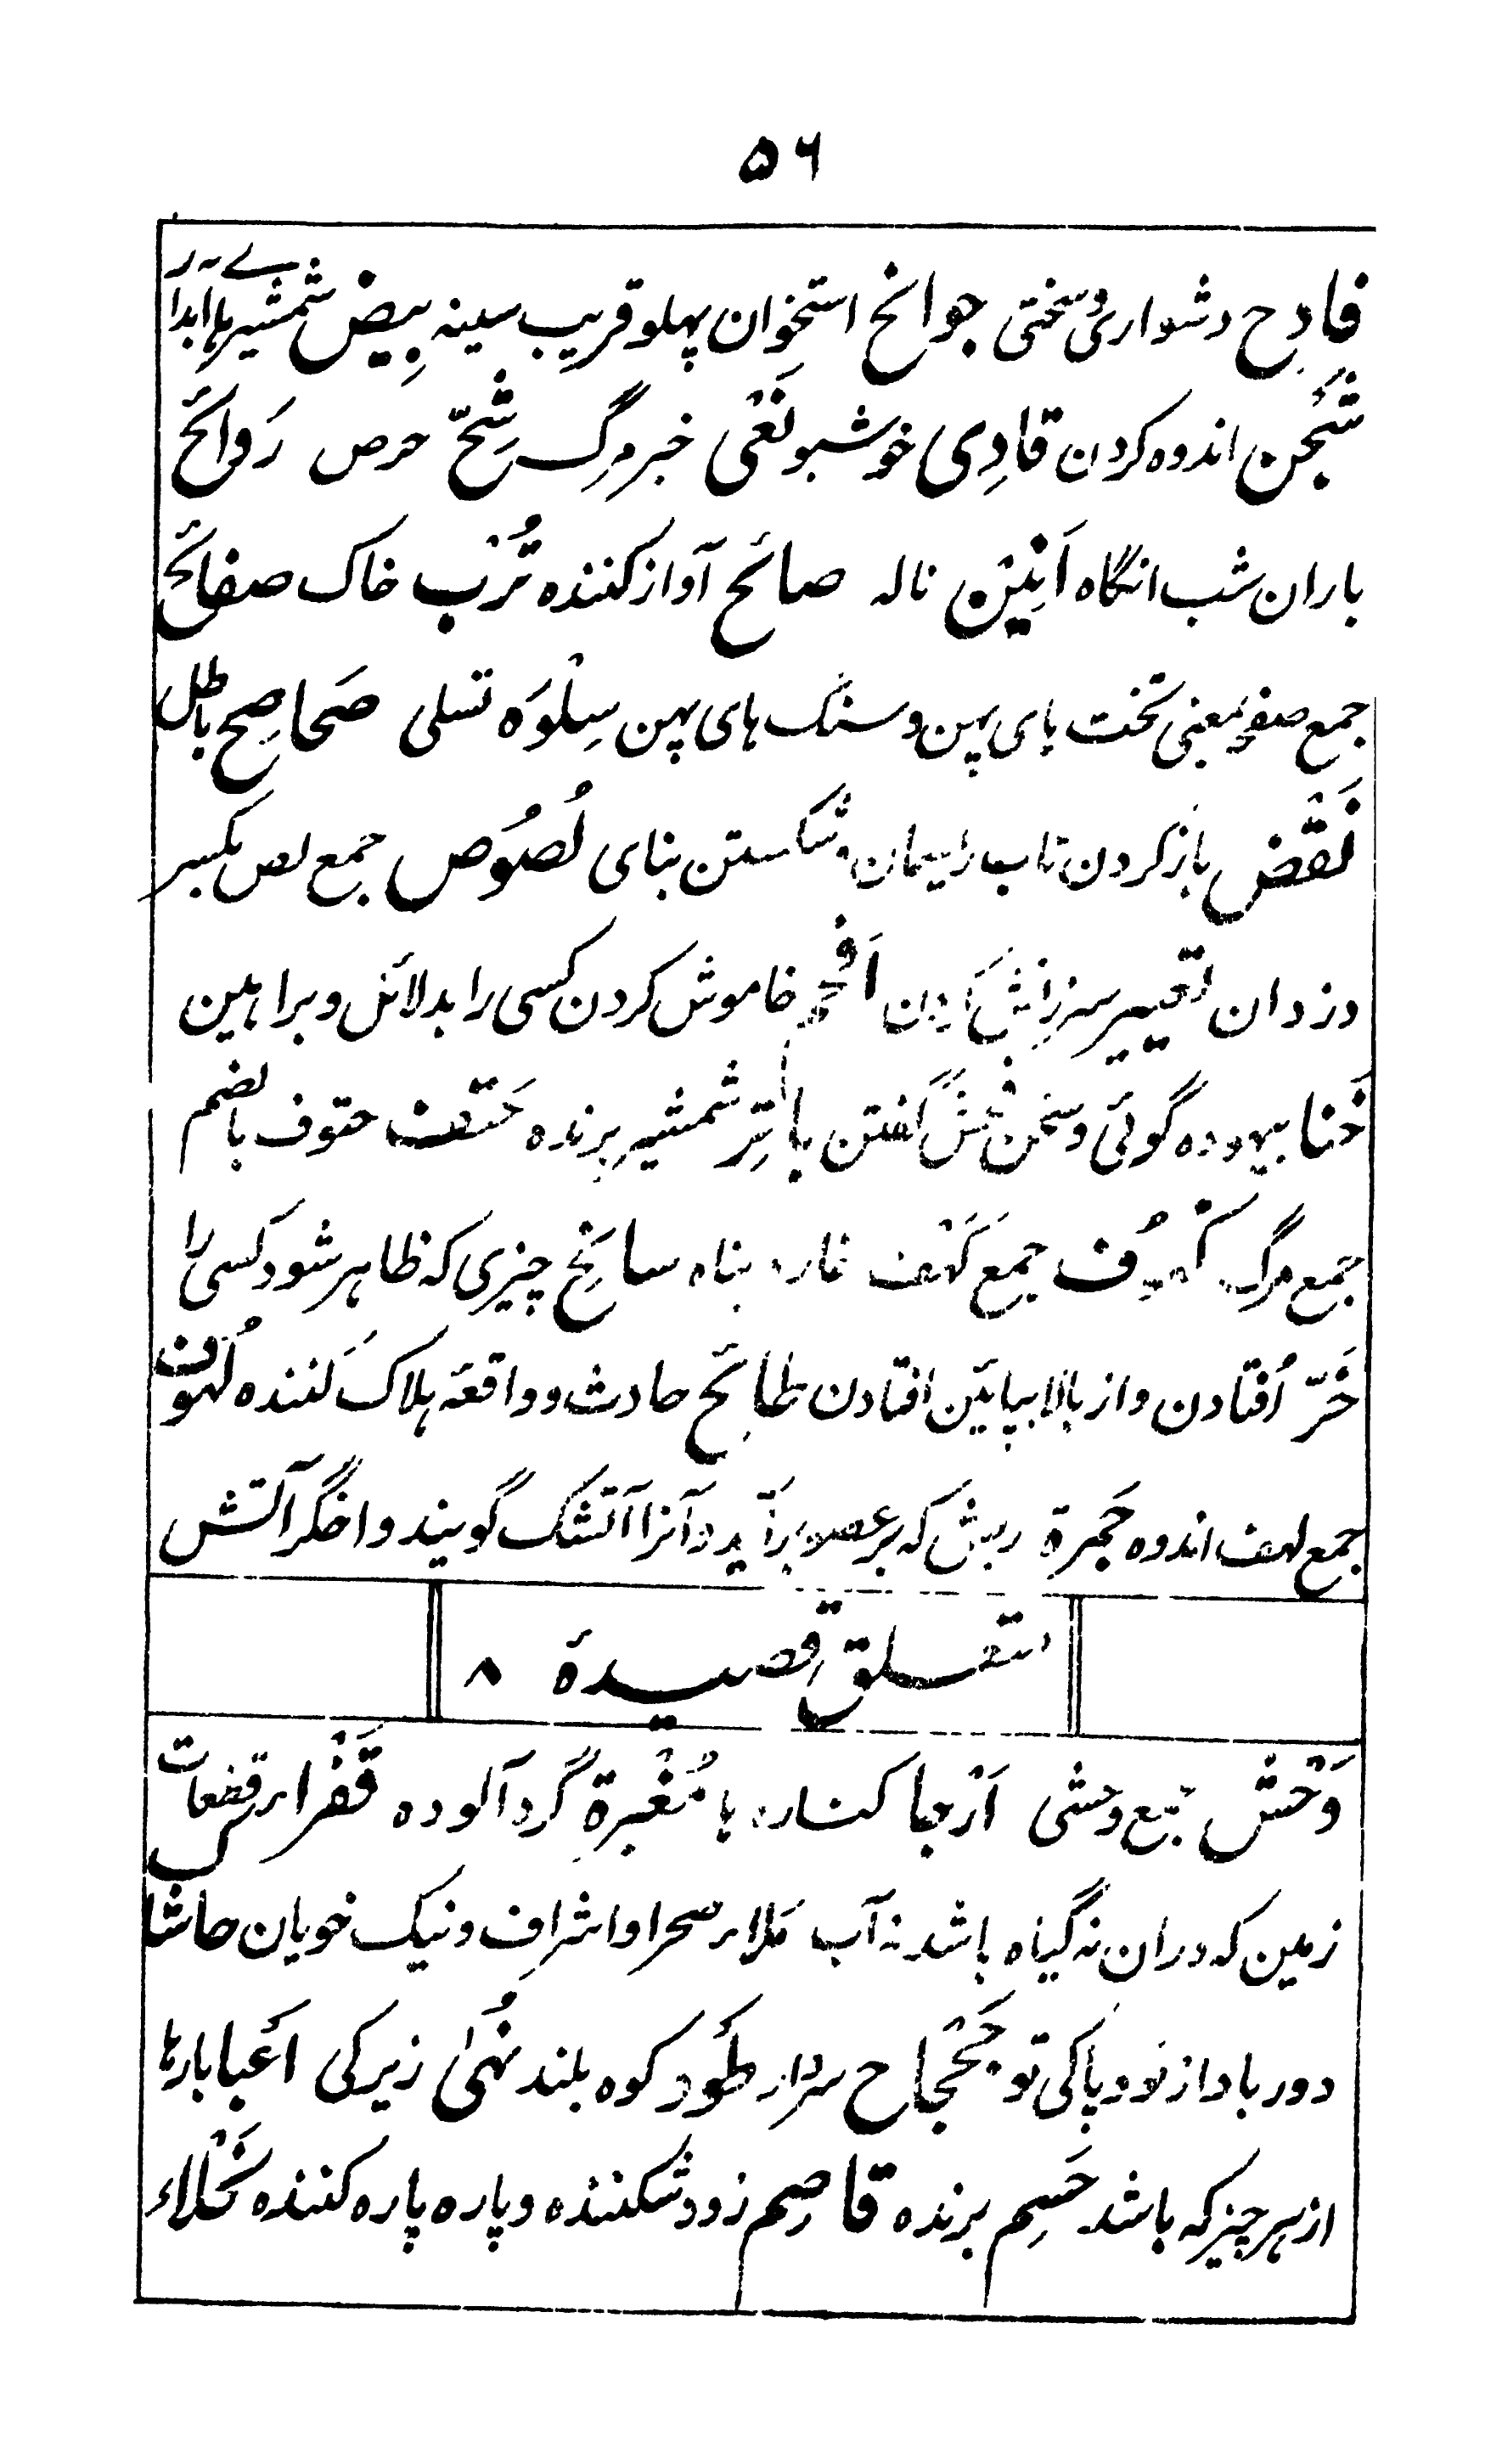 ۵۶
فادِح دشواری و سختی جوانح استخوان پهلو قریب سینه بِیض شمشیرهای آبدار
شَجن اندوه کردن قادِی خوشبو نَعْی خبر مرگ شِحّ حرص رَوائح
باران شب انگاه اَنِیْن ناله صائح آواز کننده تُرْب خاک صفائح
جمع صفحه بمعنی تخت های پهن و سنگ های پهن سِلْوَه تسلی صَحاصِح باطل
نَقْض باز کردن تاب ریسمان و شکستن بنای لُصُوص جمع لص بکسر
دزدان تعییر سرزنش کردن اَفْحم خاموش کردن کسی را بدلائل و براهین
خَنا بیهوده گوئی و سخن فحش گفتن باتِر شمشیر برنده حَتف حتوف بالضم
جمع مرگ کهوُف جمع کَهْف غار، پناه سانِح چیزی که ظاهر شود کسی را
خَرّ اُفتادن و از بالا بپائین افتادن طائِح حادث و واقعهٔ هلاک کننده لُهوف
جمع لهف اندوه جَمرة ریش که بر عضو برآید و آنرا آتشک گویند و اخگر آتش
متعلق قصیدهٔ ۸
وَحْش جمع وحشی اَرْجا کناره ها مُغْبرة گرد آلوده قَفْرا بر قضعات
زمین که دران نه گیاه باشد نه آب مَلا بر صحرا و اشراف و نیک خویان حاشا
دور باد از تو و پاکی تو جَحْجاح سردار طَود کوه بلند نُهیٰ زیرکی اَعبا بارها
از هر چیز که باشد حَسِم برنده قاصِم زود شکننده و پاره پاره کننده نَجْلاء